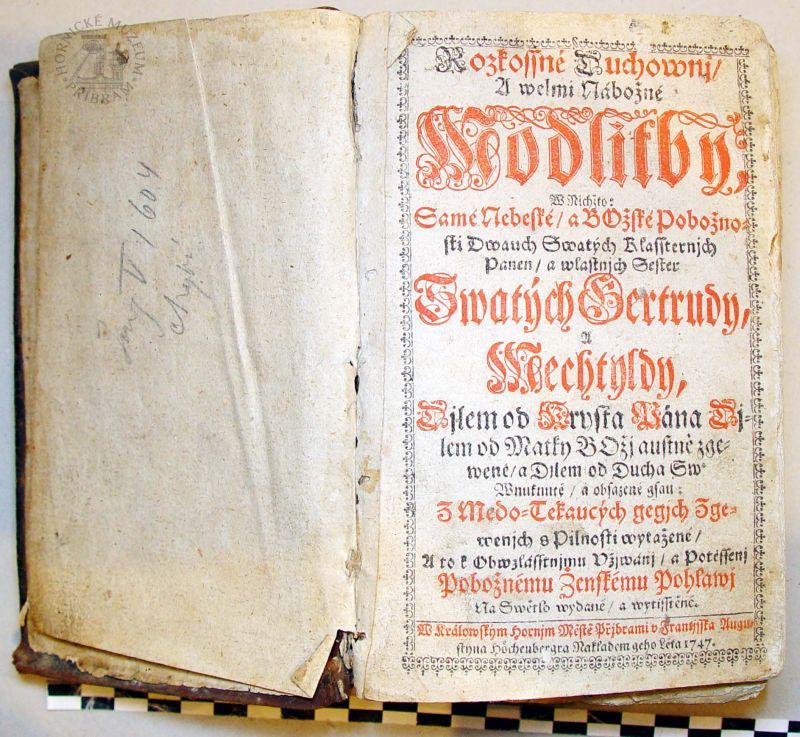 HORNICKÉ MUZEUM PŘÍBRAM
V 1604
chybí
Rozkossné Duchownj/
A welmi Nábožné
Modlitby,
W Nichžto:
Samé Nebeské/ a BOžské Pobožno-
sti Dwauch Swatých Klassternjch
Panen/ a wlastnjch Sester
Swatých Gertrudy,
A
Mechtyldy,
Djlem od Krysta Pána Dj-
lem od Matky BOžj austně zge-
wené/ a Djlem od Ducha Sw°
Wnuknuté/ a obsažené gsau:
Z Medo-Tekaucých gegjch Zge-
wenjch s Pilnosti wytažené/
A to k Obwzlásstnjmu Vžjwánj/ a Potěssenj
Pobožnému Ženskému Pohlawj
Na Swětlo wydané/ a wytisstěné.
W Králowským Hornjm Městě Přjbrami v Frantjsska Augu-
styna Höchenbergra Nákladem geho Léta 1747.